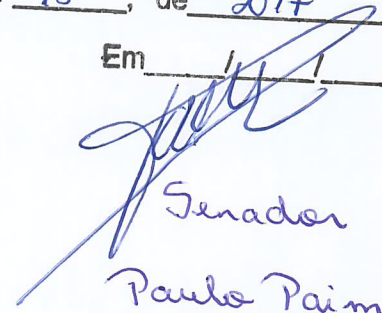 , de 2017
Em / /
Senador
Paulo Paim